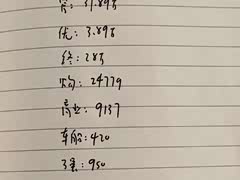 : 31.89万
优: 3.89万
终: 28万
购: 24779
商业: 9137
车船: 420
: 950